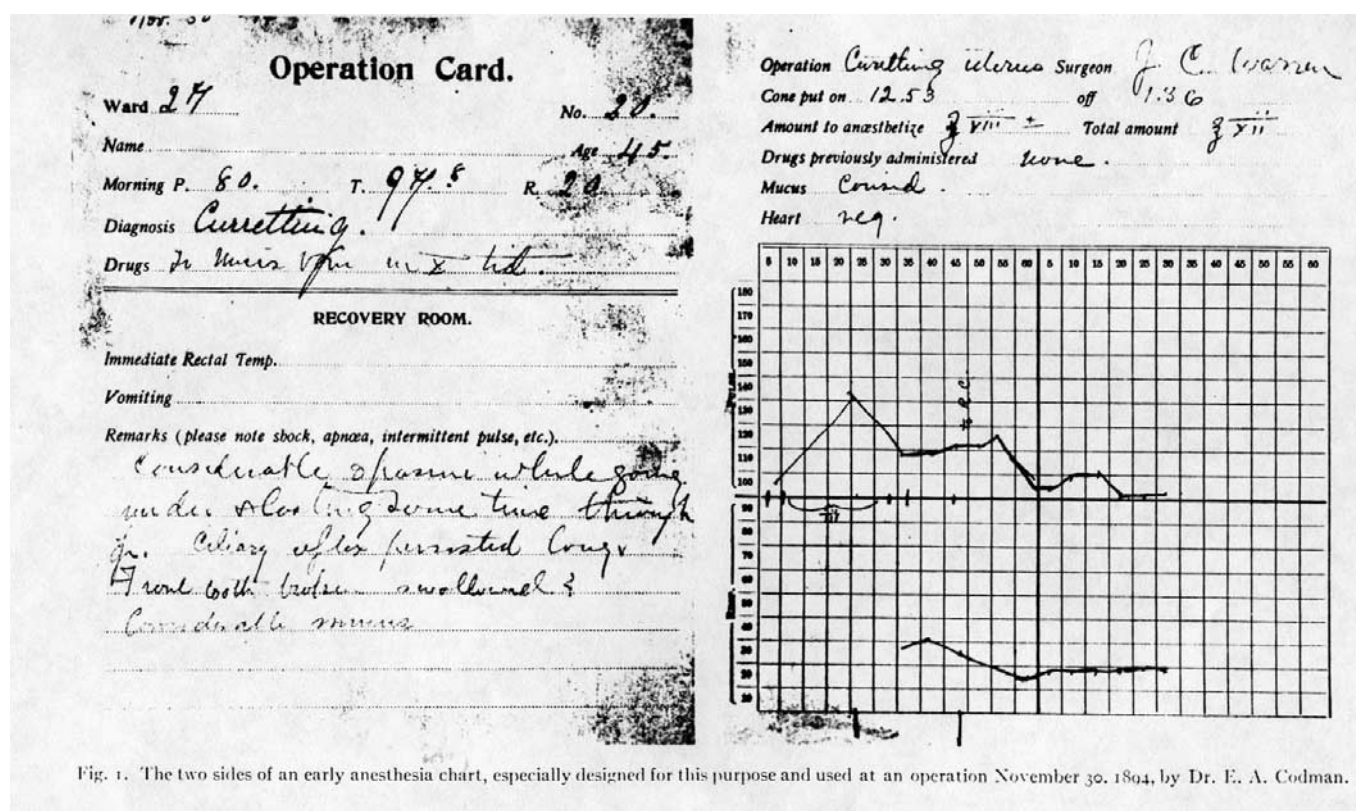 Nov. 30
Operation Card.
Ward 27 No. 20.
Name Age 45.
Morning P. 80. T. 97.8 R. 20
Diagnosis Curretting.
Drugs
RECOVERY ROOM.
Immediate Rectal Temp.
Vomiting
Remarks (please note shock, apnœa, intermittent pulse, etc.).
Considerable spasm while going
under & lasting some time through
Ciliary reflex persisted long.
Front tooth broken swallowed?
Considerable mucus
Operation Curetting uterus Surgeon J. C. Warren
Cone put on 12.53 off 1.36
Amount to anæsthetize ℥ viii ± Total amount ℥ xii
Drugs previously administered none.
Mucus Consid.
Heart reg.
5 10 15 20 25 30 35 40 45 50 55 60 5 10 15 20 25 30 35 40 45 50 55 60
180
170
160
150
140
130
120
110
100
90
80
70
60
50
40
30
20
10
Fig. 1. The two sides of an early anesthesia chart, especially designed for this purpose and used at an operation November 30, 1894, by Dr. E. A. Codman.